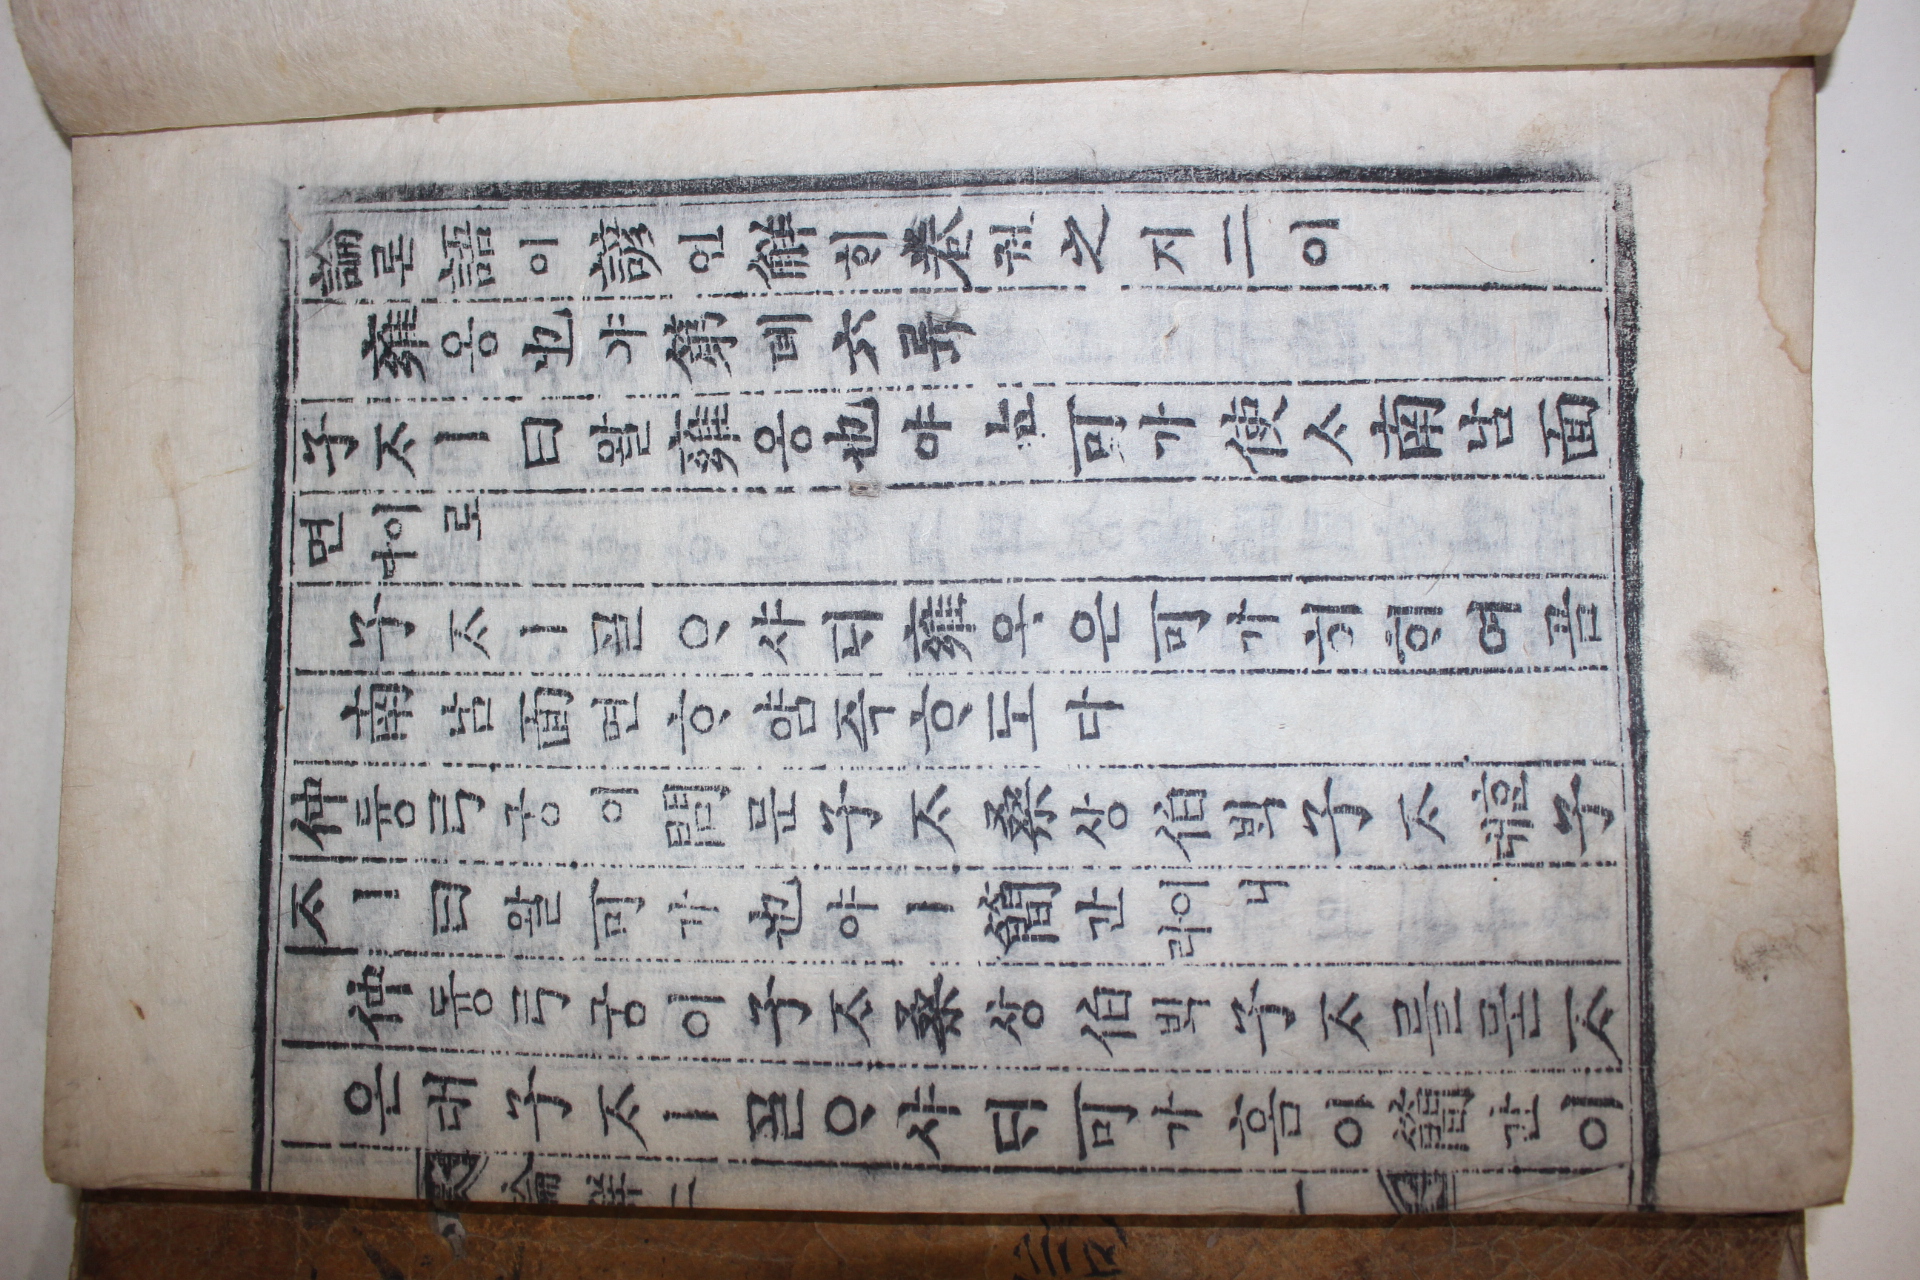 論론語어諺언解해卷권之지二이
雍옹也야第뎨六륙
子ᄌᆞㅣ曰왈雍옹也야ᄂᆞᆫ可가使ᄉᆞ南남面
면이로다
子ᄌᆞㅣᄀᆞᆯᄋᆞ샤ᄃᆡ雍옹은可가히ᄒᆞ여곰
南남面면ᄒᆞ얌즉ᄒᆞ도다
仲듕弓궁이問문子ᄌᆞ桑상伯ᄇᆡᆨ子ᄌᆞᄒᆞᆫ대子
ᄌᆞㅣ曰왈可가也야ㅣ簡간이니라
仲듕弓궁이子ᄌᆞ桑상伯ᄇᆡᆨ子ᄌᆞ를묻ᄌᆞ
온대子ᄌᆞㅣᄀᆞᆯᄋᆞ샤ᄃᆡ可가홈이簡간이
論解二 一